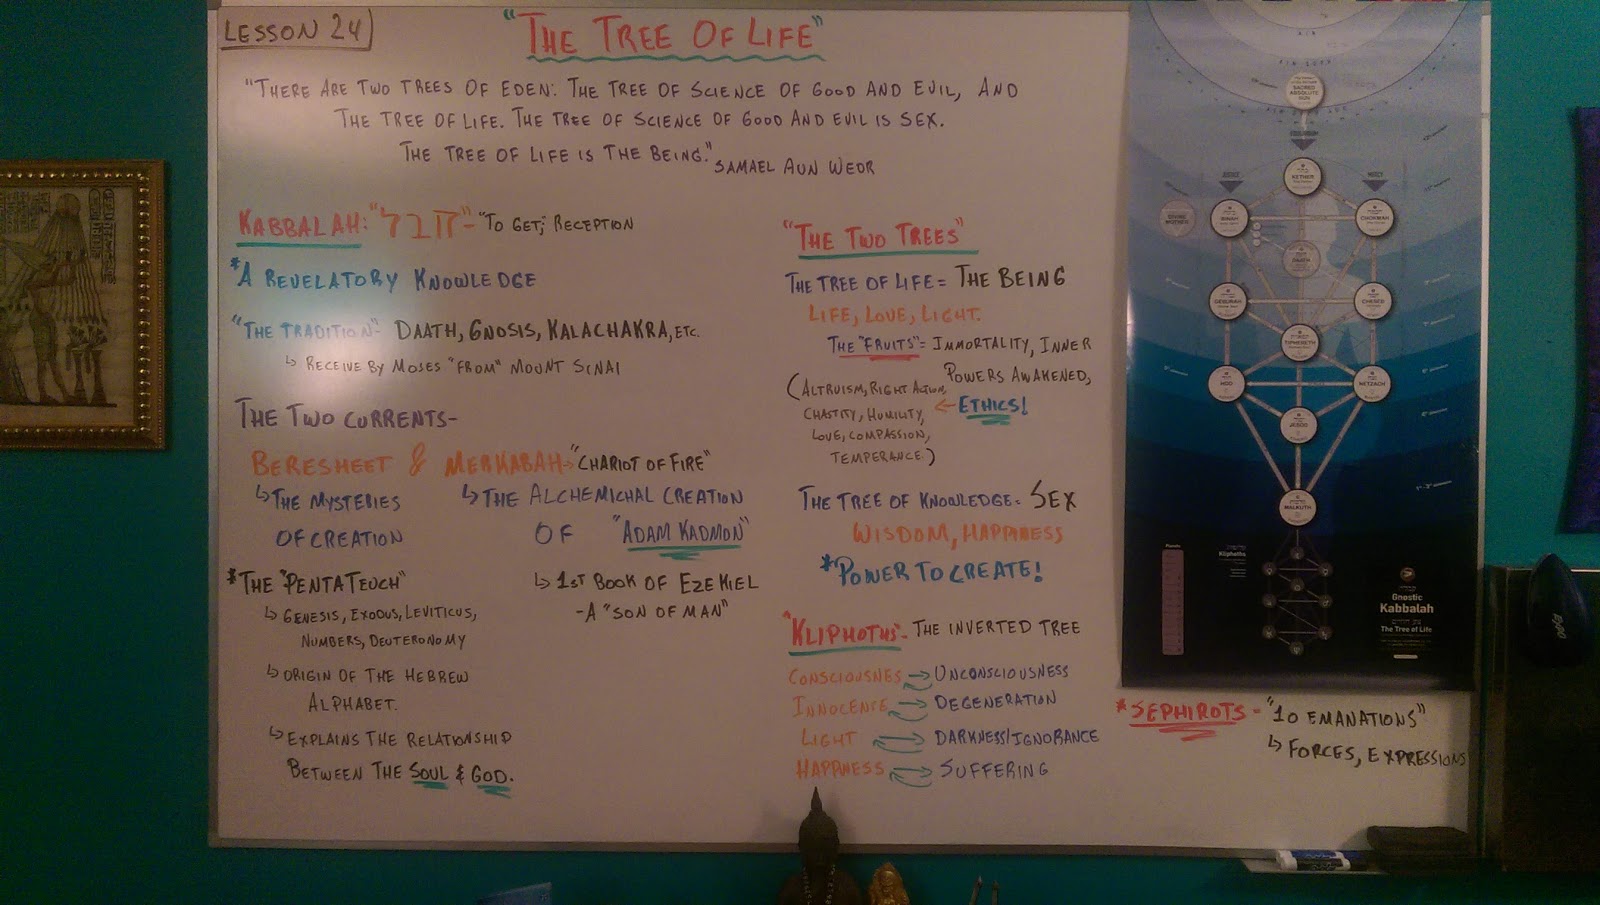 LESSON 24
"THE TREE OF LIFE"
"THERE ARE TWO TREES OF EDEN: THE TREE OF SCIENCE OF GOOD AND EVIL, AND
THE TREE OF LIFE. THE TREE OF SCIENCE OF GOOD AND EVIL IS SEX.
THE TREE OF LIFE IS THE BEING."
SAMAEL AUN WEOR
KABBALAH: "קבל" - "TO GET; RECEPTION
*A REVELATORY KNOWLEDGE
"THE TRADITION"- DAATH, GNOSIS, KALACHAKRA, ETC.
↳ RECEIVE BY MOSES "FROM" MOUNT SINAI
THE TWO CURRENTS-
BERESHEET & MERKABAH→ "CHARIOT OF FIRE"
↳ THE MYSTERIES
OF CREATION
↳ THE ALCHEMICHAL CREATION
OF "ADAM KADMON"
*THE "PENTATEUCH"
↳ GENESIS, EXODUS, LEVITICUS,
NUMBERS, DEUTERONOMY
↳ ORIGIN OF THE HEBREW
ALPHABET.
↳ EXPLAINS THE RELATIONSHIP
BETWEEN THE SOUL & GOD.
↳ 1ST BOOK OF EZEKIEL
- A "SON OF MAN"
"THE TWO TREES"
THE TREE OF LIFE = THE BEING
LIFE, LOVE, LIGHT.
THE "FRUITS" = IMMORTALITY, INNER
POWERS AWAKENED,
(ALTRUISM, RIGHT ACTION,
CHASTITY, HUMILITY, ← ETHICS!
LOVE, COMPASSION,
TEMPERANCE.)
THE TREE OF KNOWLEDGE = SEX
WISDOM, HAPPINESS
*POWER TO CREATE!
"KLIPHOTHS"- THE INVERTED TREE
CONSCIOUSNES → UNCONSCIOUSNESS
INNOCENSE → DEGENERATION
LIGHT → DARKNESS/IGNORANCE
HAPPINESS → SUFFERING
*SEPHIROTS - "10 EMANATIONS"
↳ FORCES, EXPRESSIONS
AIN
AIN SOPH
SACRED
ABSOLUTE
SUN
KETHER
JUSTICE
MERCY
BINAH
CHOKMAH
DIVINE
MOTHER
DAATH
GEBURAH
CHESED
TIPHERETH
HOD
NETZACH
JESOD
MALKUTH
Planets
Kliphoth
Gnostic
Kabbalah
The Tree of Life
EXPO